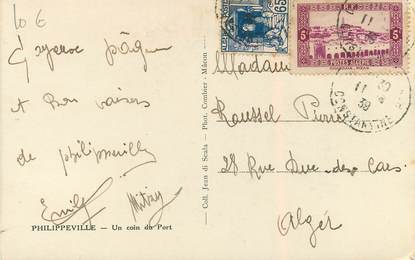 10 6
Joyeuse pâques
et Bon baisers
de philippeville
Emily Mitzy
PHILIPPEVILLE — Un coin du Port
Coll. Jean di Scala — Phot. Combier - Mâcon
65
POSTES ALGERIE
5
11
38
CONSTANTINE
Madame
Roussel Pierre
28 Rue Duc-des-Cars
Alger